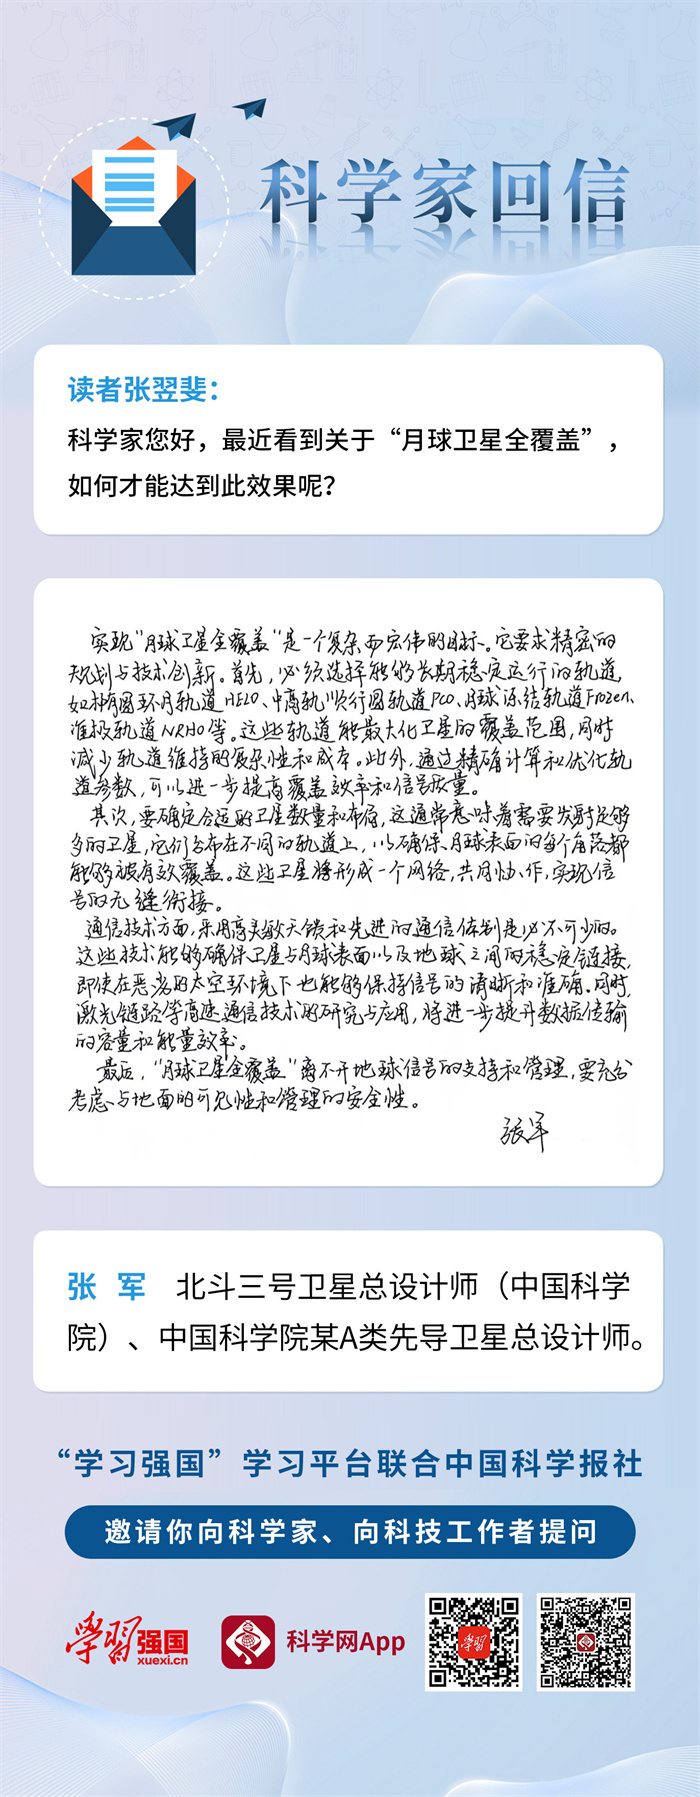 科学家回信
读者张翌斐：
科学家您好，最近看到关于“月球卫星全覆盖”，
如何才能达到此效果呢？
实现“月球卫星全覆盖”是一个复杂而宏伟的目标。它要求精密的
规划与技术创新。首先，必须选择能够长期稳定运行的轨道，
如椭圆环月轨道HELO、中高轨顺行圆轨道PCO、月球冻结轨道Frozen、
准极轨道NRHO等。这些轨道能最大化卫星的覆盖范围，同时
减少轨道维持的复杂性和成本。此外，通过精确计算和优化轨
道参数，可以进一步提高覆盖效率和信号质量。
其次，要确定合适的卫星数量和布局，这通常意味着需要发射足够
多的卫星，它们分布在不同的轨道上，以确保月球表面的每个角落都
能够被有效覆盖。这些卫星将形成一个网络，共同协作，实现信
号的无缝衔接。
通信技术方面，采用高灵敏天馈和先进的通信体制是必不可少的。
这些技术能够确保卫星与月球表面以及地球之间的稳定链接，
即使在恶劣的太空环境下也能够保持信号的清晰和准确。同时，
激光链路等高速通信技术的研究与应用，将进一步提升数据传输
的容量和能量效率。
最后，“月球卫星全覆盖”离不开地球信号的支持和管理，要充分
考虑与地面的可见性和管理的安全性。
张军
张 军 北斗三号卫星总设计师（中国科学
院）、中国科学院某A类先导卫星总设计师。
“学习强国”学习平台联合中国科学报社
邀请你向科学家、向科技工作者提问
学习强国
xuexi.cn
科学网App
学习